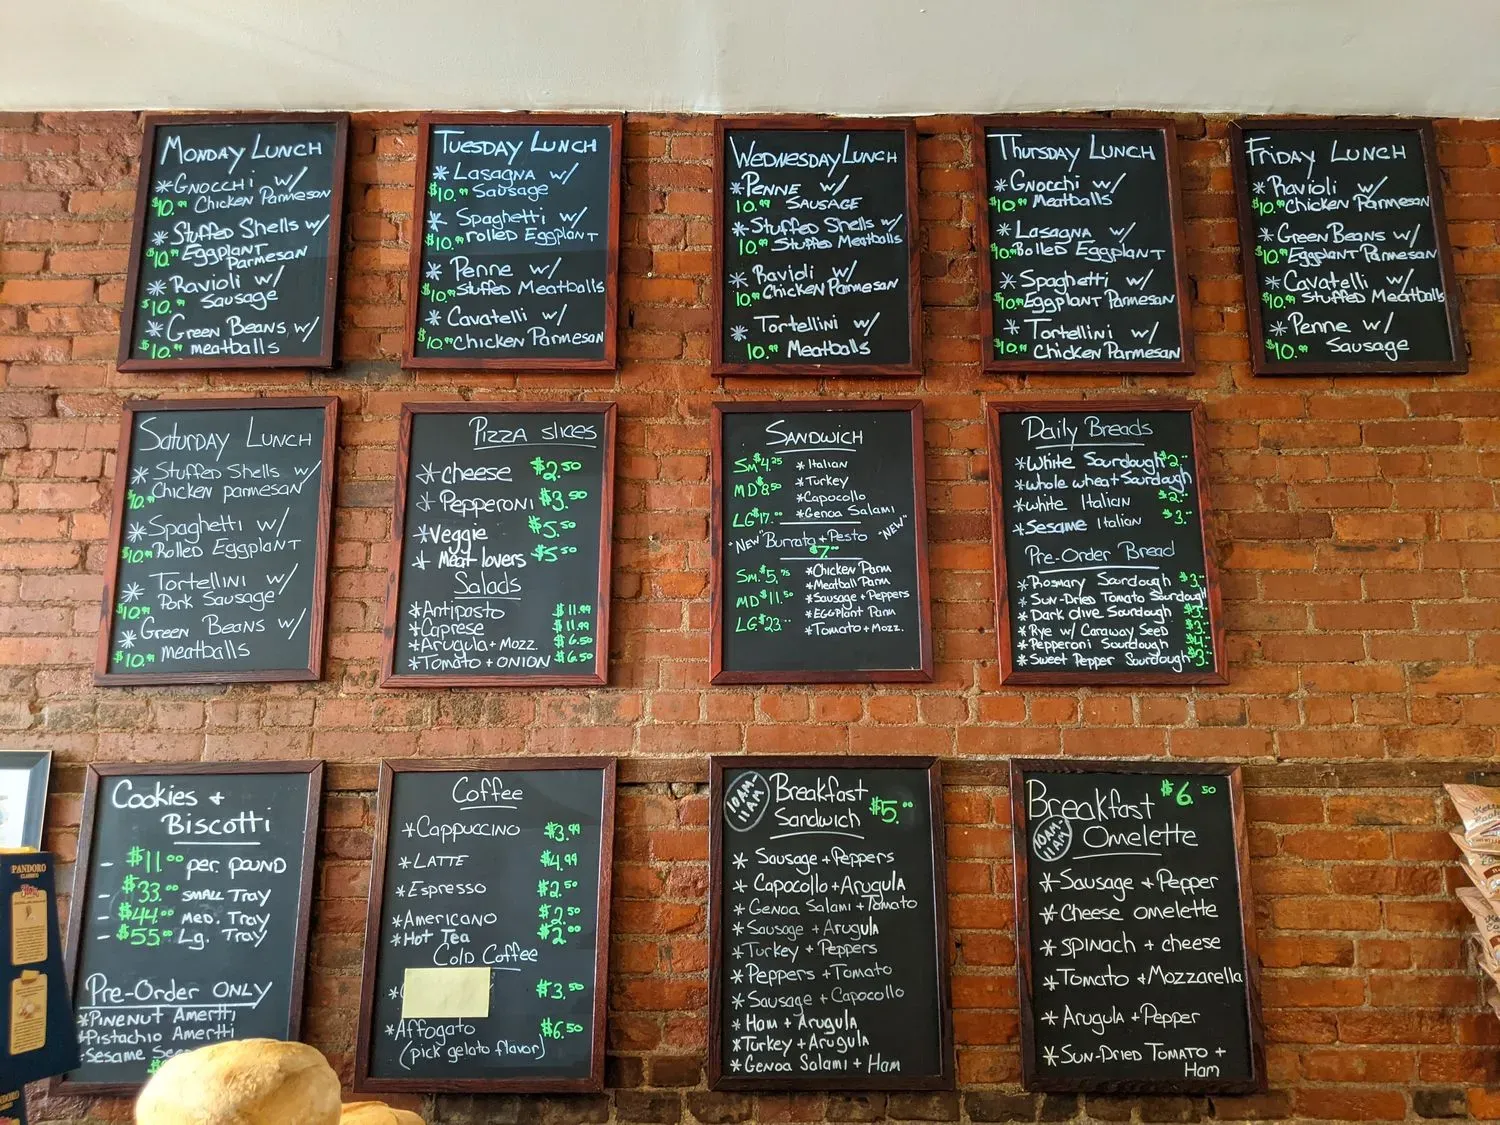 Monday Lunch
* Gnocchi w/
$10.99 Chicken Parmesan
* Stuffed Shells w/
$10.99 Eggplant
Parmesan
* Ravioli w/
$10.99 Sausage
* Green Beans w/
$10.99 meatballs
Tuesday Lunch
* Lasagna w/
$10.99 Sausage
* Spaghetti w/
$10.99 rolled Eggplant
* Penne w/
$10.99 Stuffed Meatballs
* Cavatelli w/
$10.99 Chicken Parmesan
Wednesday Lunch
* Penne w/
10.99 Sausage
* Stuffed Shells w/
10.99 Stuffed Meatballs
* Ravioli w/
10.99 Chicken Parmesan
* Tortellini w/
10.99 Meatballs
Thursday Lunch
* Gnocchi w/
$10.99 Meatballs
* Lasagna w/
$10.99 Rolled Eggplant
* Spaghetti w/
$10.99 Eggplant Parmesan
* Tortellini w/
$10.99 Chicken Parmesan
Friday Lunch
* Ravioli w/
$10.99 Chicken Parmesan
* Green Beans w/
$10.99 Eggplant Parmesan
* Cavatelli w/
$10.99 Stuffed Meatballs
* Penne w/
$10.99 Sausage
Saturday Lunch
* Stuffed Shells w/
$10.99 Chicken parmesan
* Spaghetti w/
$10.99 Rolled Eggplant
* Tortellini w/
$10.99 Pork Sausage
* Green Beans w/
$10.99 meatballs
Pizza slices
* cheese $2.50
* Pepperoni $3.50
* Veggie $5.50
* Meat lovers $5.50
Salads
* Antipasto $11.99
* Caprese $11.99
* Arugula + Mozz. $6.50
* Tomato + Onion $6.50
Sandwich
Sm $4.25 * Italian
* Turkey
MD $8.50 * Capocollo
LG $17.00 * Genoa Salami
"New" Burrata + Pesto "New"
$7.00
Sm. $5.75 * Chicken Parm
* Meatball Parm
MD $11.50 * Sausage + Peppers
* Eggplant Parm
LG. $23.00 * Tomato + Mozz.
Daily Breads
* White Sourdough $2.
* whole wheat Sourdough
* white Italian $2.
* Sesame Italian $3.
Pre-Order Bread
* Rosmary Sourdough $3.
* Sun-Dried Tomato Sourdough
* Dark Olive Sourdough $3.
* Rye w/ Caraway Seed $3.
* Pepperoni Sourdough $4.
* Sweet Pepper Sourdough $3.
Cookies +
Biscotti
- $11.00 per pound
- $33.00 small Tray
- $44.00 med. Tray
- $55.00 Lg. Tray
Pre-Order Only
* Pinenut Amertti
* Pistachio Amertti
- Sesame
Coffee
* Cappuccino $3.99
* Latte $4.99
* Espresso $2.50
* Americano $2.50
* Hot Tea $2.00
Cold Coffee
* $3.50
* Affogato $6.50
(pick gelato flavor)
10AM-
11AM
Breakfast
Sandwich $5.00
* Sausage + Peppers
* Capocollo + Arugula
* Genoa Salami + Tomato
* Sausage + Arugula
* Turkey + Peppers
* Peppers + Tomato
* Sausage + Capocollo
* Ham + Arugula
* Turkey + Arugula
* Genoa Salami + Ham
Breakfast $6.50
10AM-
11AM
Omelette
* Sausage + Pepper
* Cheese omelette
* spinach + cheese
* Tomato + Mozzarella
* Arugula + Pepper
* Sun-Dried Tomato +
Ham
PANDORO
CLASSICO